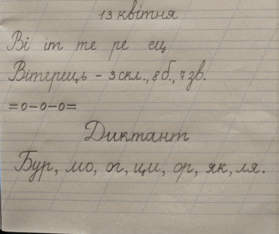 13 квітня
Ві іт те ре ец
Вітерець - 3 скл., 8 б., 7 зв.
=о-о-о=
Диктант
Бур, мо, ог, ци, ор, як, ля.